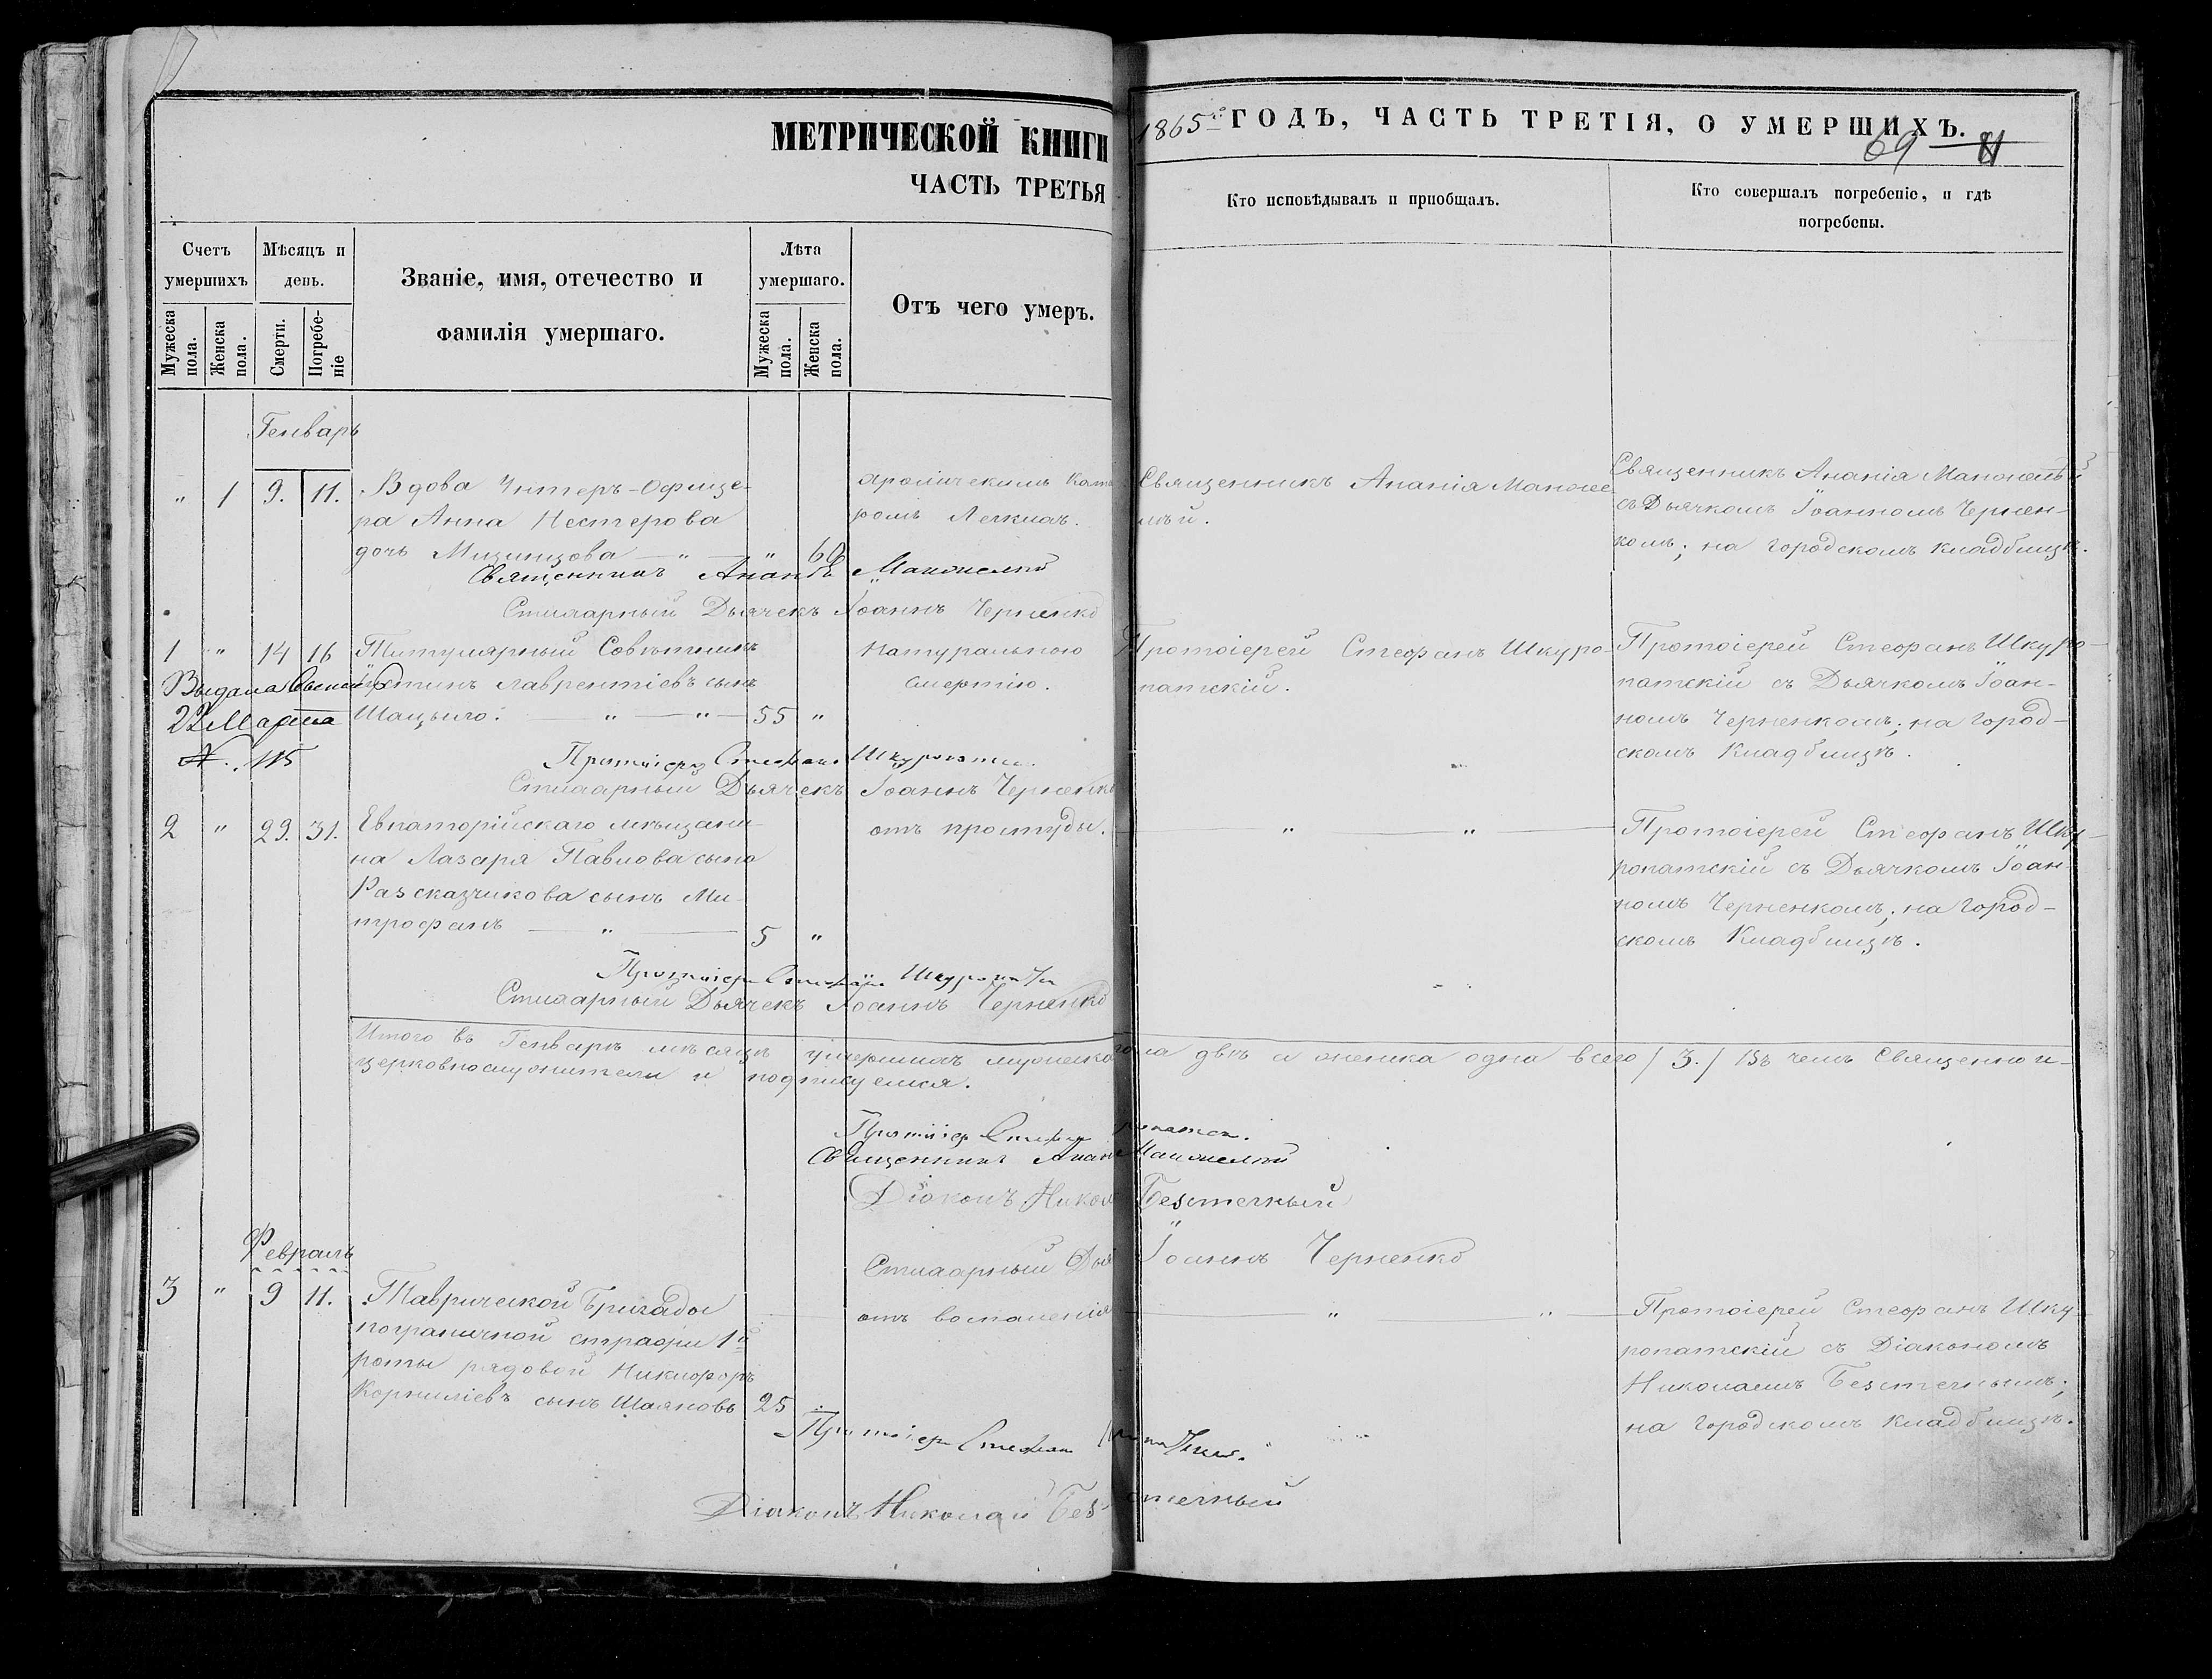 МЕТРИЧЕСКОЙ КНИГИ
ЧАСТЬ ТРЕТЬЯ
1865 ГОДЪ, ЧАСТЬ ТРЕТІЯ, О УМЕРШИХЪ.
69
Счетъ умершихъ
Мужеска пола.
Женска пола.
Мѣсяцъ и день.
Смерти.
Погребеніе
Званіе, имя, отечество и
фамилія умершаго.
Лѣта умершаго.
Мужеска пола.
Женска пола.
Отъ чего умеръ.
Кто исповѣдывалъ и пріобщалъ.
Кто совершалъ погребеніе, и гдѣ
погребены.
Генварь
" 1 9. 11.
Вдова Унтеръ-Офице-
ра Анна Нестерова
дочь — " — "
Хроническимъ
Легкихъ.
Священникъ Ананія
Священникъ Ананія
съ Дьячкомъ Іоанномъ Чернен-
комъ; на городскомъ кладбищѣ.
Священникъ
Стихарный Дьячекъ Іоаннъ Черненко
1 " 14 16
Титулярный Совѣтникъ
Іустинъ Лаврентіевъ сынъ
— " — " — 55 "
Натуральною
смертію.
Протоіерей Стефанъ Шкуро-
патскій.
Протоіерей Стефанъ Шкуро-
патскій съ Дьячкомъ Іоан-
номъ Черненкомъ; на Город-
скомъ Кладбищѣ.
Выдана
22 Марта
№. 115
Протоіерей Стефанъ
Стихарный Дьячекъ Іоаннъ Черненко
2 " 29. 31.
Евпаторійскаго мѣщани-
на Лазаря Павлова сына
Разсказчикова сынъ Ми-
трофанъ — " — 5 "
отъ простуды.
— " — " —
Протоіерей Стефанъ Шку-
ропатскій съ Дьячкомъ Іоан-
номъ Черненкомъ; на Город-
скомъ Кладбищѣ.
Протоіерей Стефанъ
Стихарный Дьячекъ Іоаннъ Черненко
Итого въ Генварѣ мѣсяцѣ умершихъ мужеска пола два а женска одна всего /3./ Въ чемъ Священно и-
церковнослужители и подпису емся.
Протоіерей Стефанъ
Священникъ
Діаконъ Никол Безтечный
Стихарный Дья Іоаннъ Черненко
Февраль
3 " 9 11.
Таврической Бригады
пограничной стражи 1й
роты рядовой Никифоръ
Корниліевъ сынъ Шаяновъ 25
отъ воспаленія
— " — " —
Протоіерей Стефанъ Шку-
ропатскій съ Діакономъ
Николаемъ Безтечнымъ;
на городскомъ кладбищѣ.
Протоіерей Стефанъ
Діаконъ Николай Безтечный